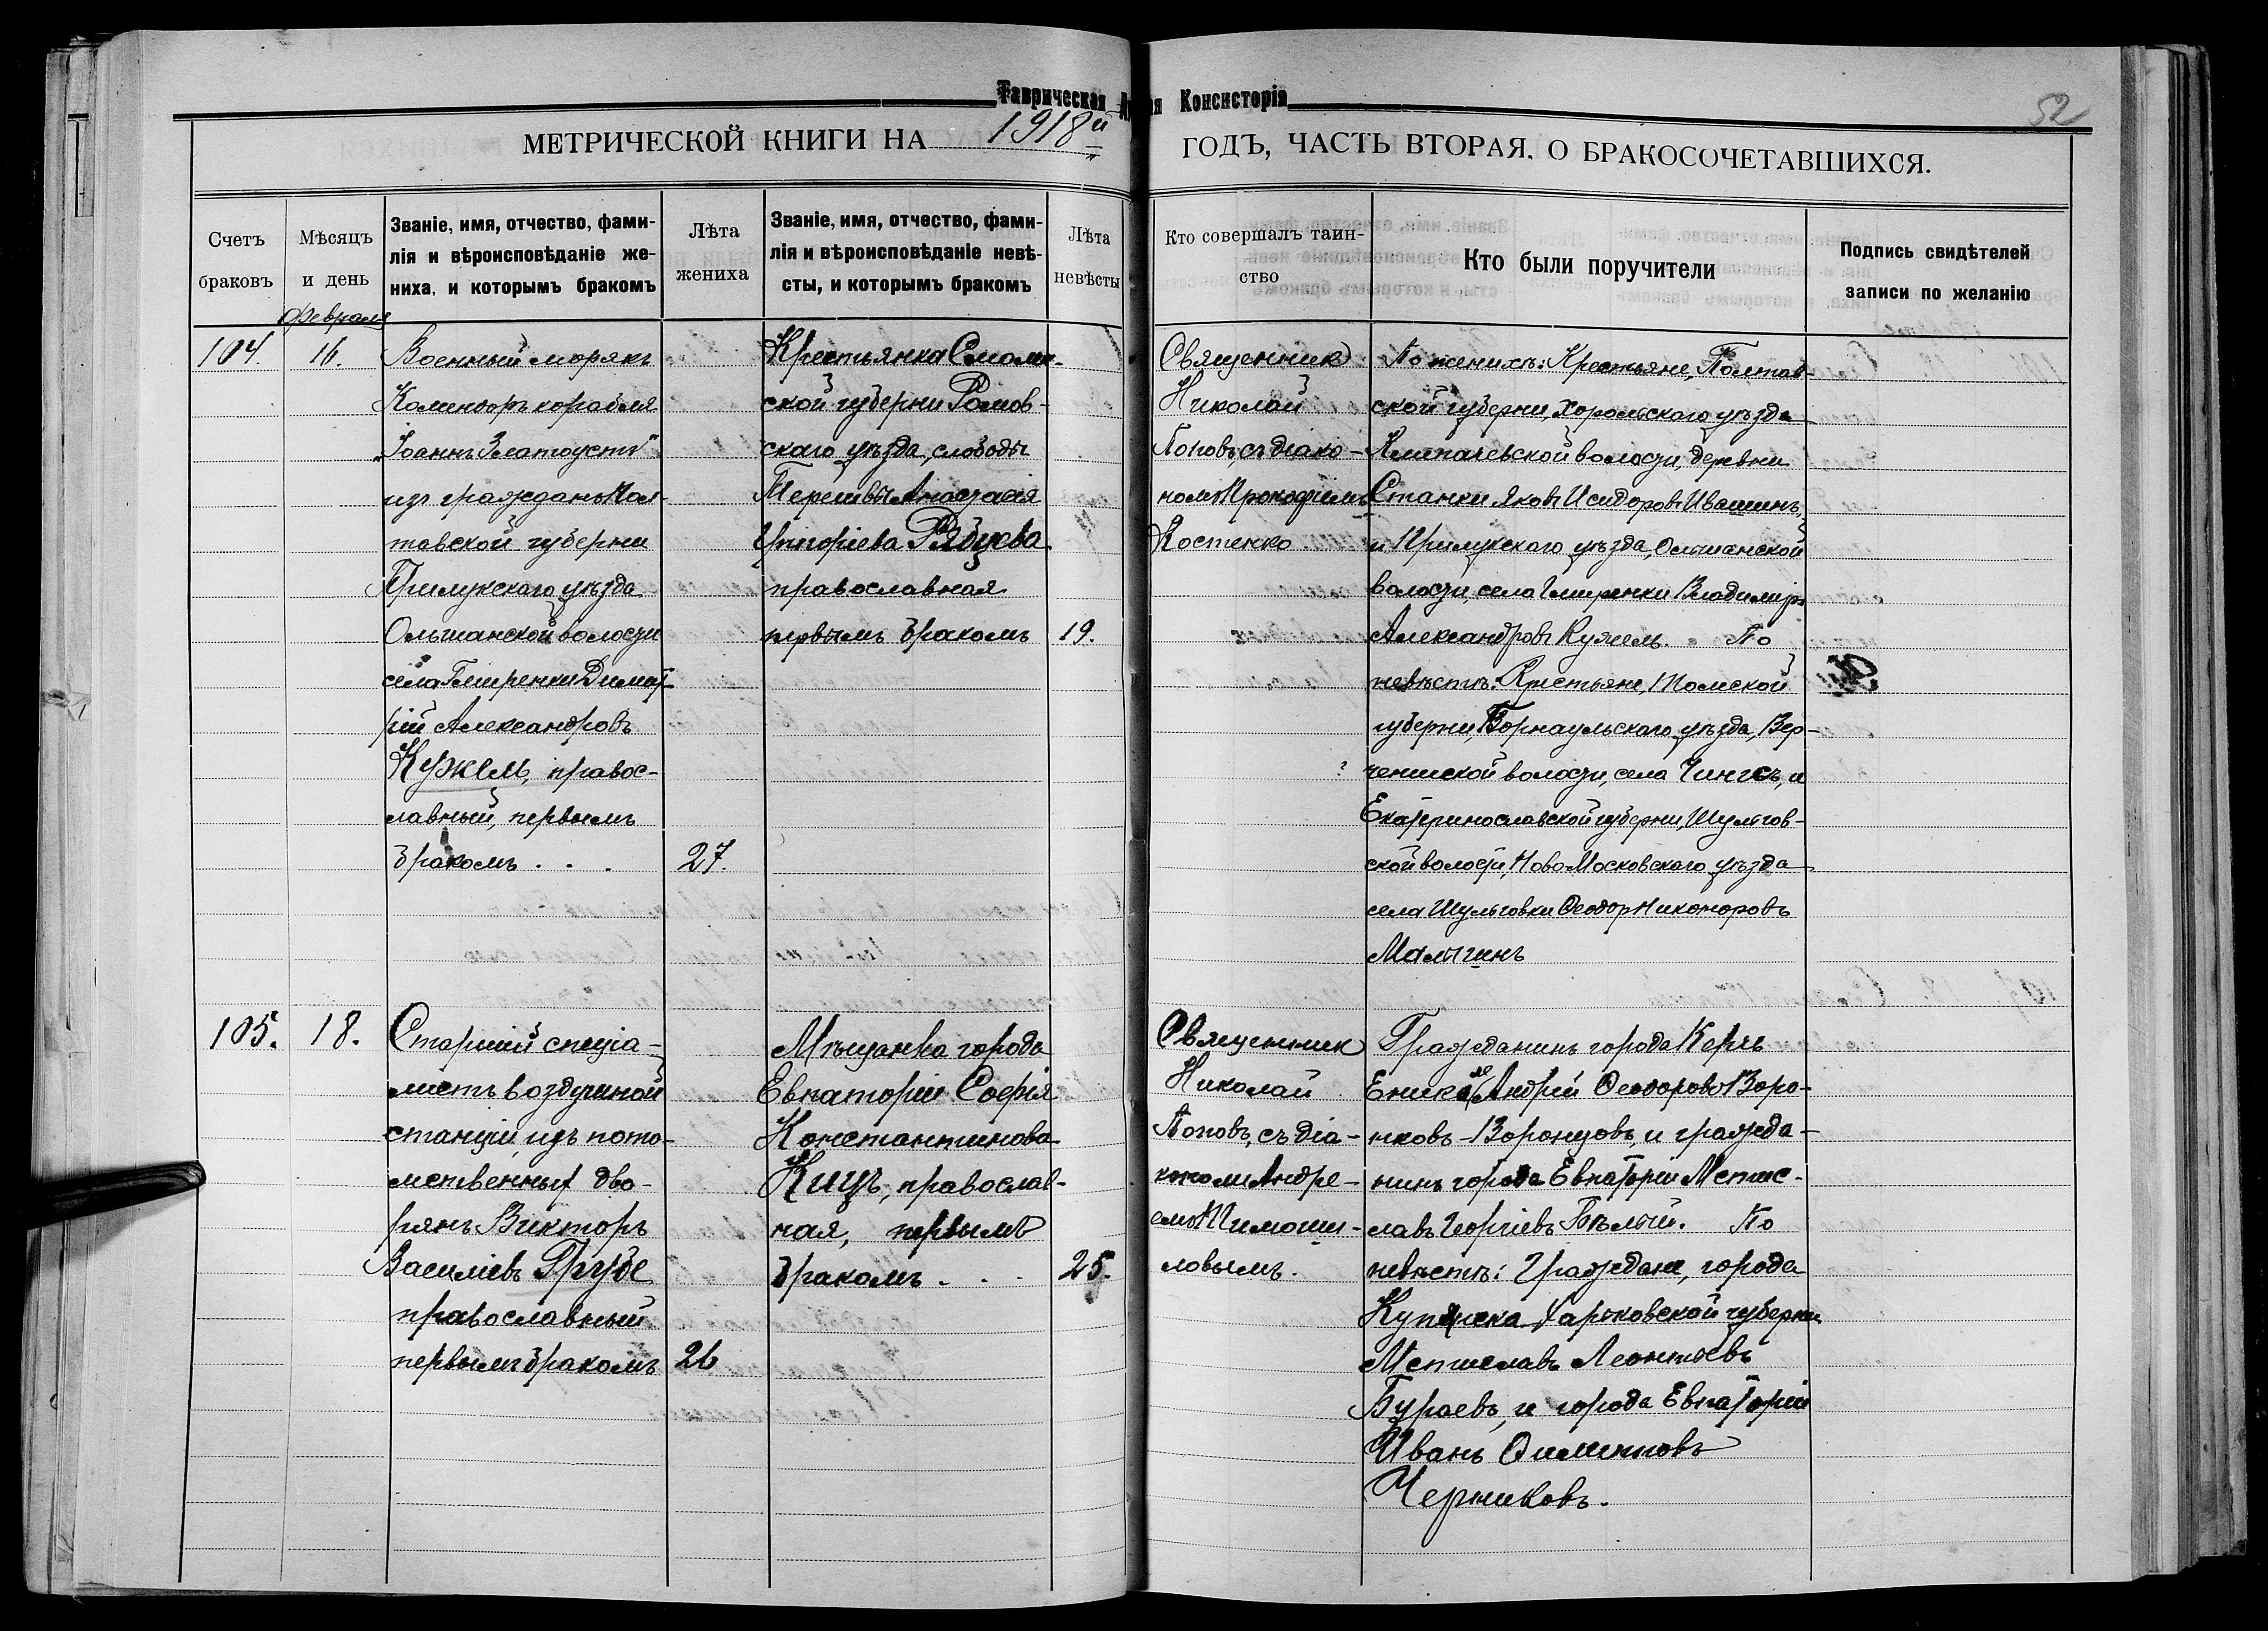 Таврическая
ая Консисторія
52
МЕТРИЧЕСКОЙ КНИГИ НА 1918й
ГОДЪ, ЧАСТЬ ВТОРАЯ, О БРАКОСОЧЕТАВШИХСЯ.
Счетъ
браковъ
Мѣсяцъ
и день
Званіе, имя, отчество, фами-
лія и вѣроисповѣданіе же-
ниха, и которымъ бракомъ
Лѣта
жениха
Званіе, имя, отчество, фами-
лія и вѣроисповѣданіе невѣ-
сты, и которымъ бракомъ
Лѣта
невѣсты
Кто совершалъ таин-
ство
Кто были поручители
Подпись свидѣтелей
записи по желанію
Февраля
104.
16.
Военный морякъ
Комендоръ корабля
„Іоаннъ Златоустъ"
изъ гражданъ Пол-
тавской губерни
Прилукскаго уѣзда
Ольшанской волости
села Гмиренки Димит-
рій Александровъ
Кужель, правос-
лавный, первымъ
бракомъ . . .
27.
Крестьянка Смолен-
ской губерни
скаго уѣзда, слободы
Анастасія
Григоріева Рябцева
православная
первымъ бракомъ
19.
Священник
Николай
Поповъ, съ діако-
номъ Прокофіемъ
Костенко
По женихѣ: Крестьяне, Полтав-
ской губерни, Хорольскаго уѣзда
волости, деревни
Станки Яковъ Исидоровъ Ивашинъ,
и Прилукскаго уѣзда, Ольшанской
волости, села Гмиренки Владимиръ
Александровъ Кужель. По
невѣстѣ: Крестьяне, Томской
губерни, Борнаульскаго уѣзда, Вер-
ченской волости, села Чингсъ, и
Екатеринославской губерни, Шульгов-
ской волости, Ново Московскаго уѣзда
села Шульговки Феодор Никоноровъ
Малыгинъ
105.
18.
Старшій спеціа-
листъ воздушной
станціи, изъ пото-
мственных дво-
рянъ Викторъ
Василіевъ Грубе
православный
первымъ бракомъ
26
Мѣщанка города
Евпаторіи Софія
Константинова
Кицъ, православ-
ная, первымъ
бракомъ . . .
25.
Священник
Николай
Поповъ, съ діа-
кономъ Андре-
емъ Шимоши-
ловымъ.
Гражданинъ города Керчь
Еникале Андрей Феодоровъ Воро-
нковъ-Воронцовъ, и гражда-
нинъ города Евпаторіи Мстис-
лавъ Георгіевъ Бѣлый. По
невѣстѣ: Граждане, города
Купянска Харьковской губерни
Мстиславъ Леонтьевъ
Бураевъ, и города Евпаторіи
Иванъ Филиповъ
Черниковъ.